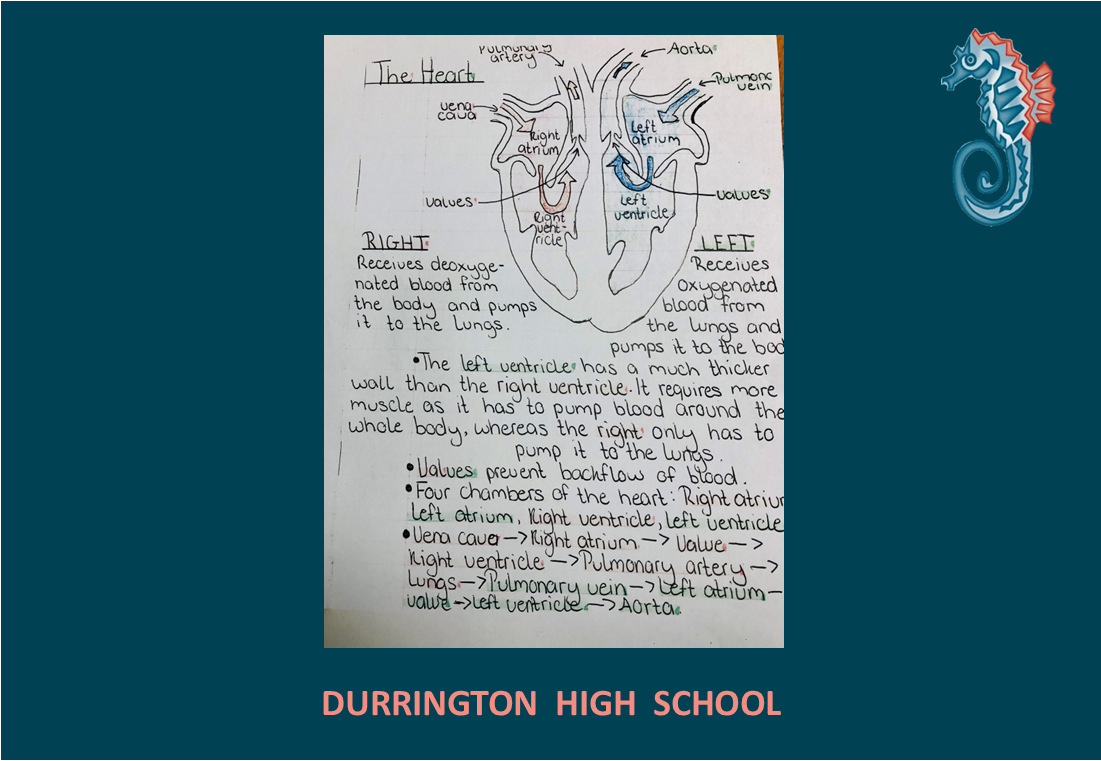 Pulmonary
artery
Aorta
The Heart
Pulmonc
vein
vena
cava
Right
atrium
Left
atrium
values
values
Left
ventricle
Right
vent-
ricle
RIGHT
Receives deoxyge-
nated blood from
the body and pumps
it to the lungs.
LEFT
Receives
oxygenated
blood from
the lungs and
pumps it to the bod
•The left ventricle has a much thicker
wall than the right ventricle. It requires more
muscle as it has to pump blood around the
whole body, whereas the right only has to
pump it to the lungs.
•Values prevent backflow of blood.
•Four chambers of the heart: Right atriu
left atrium, Right ventricle, left ventricle
•Vena cava —> Right atrium —> Value —>
Right ventricle —> Pulmonary artery —>
Lungs —> Pulmonary vein —> Left atrium —
valve —> Left ventricle —> Aorta.
DURRINGTON HIGH SCHOOL